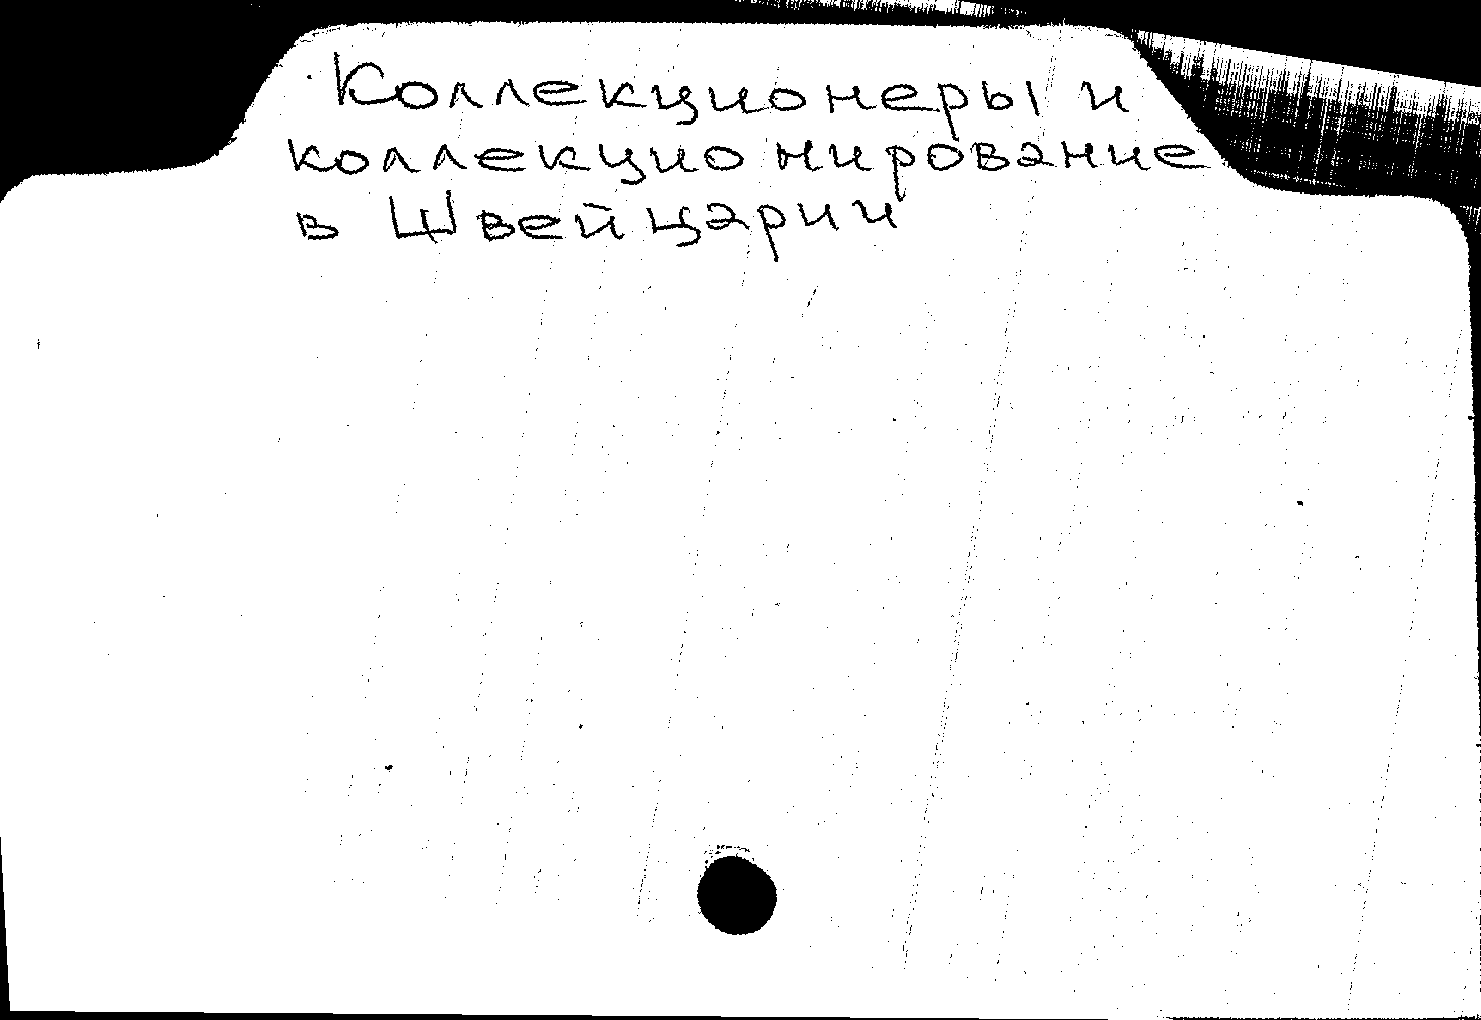 Коллекционеры и
коллекционирование
в Швейцарии